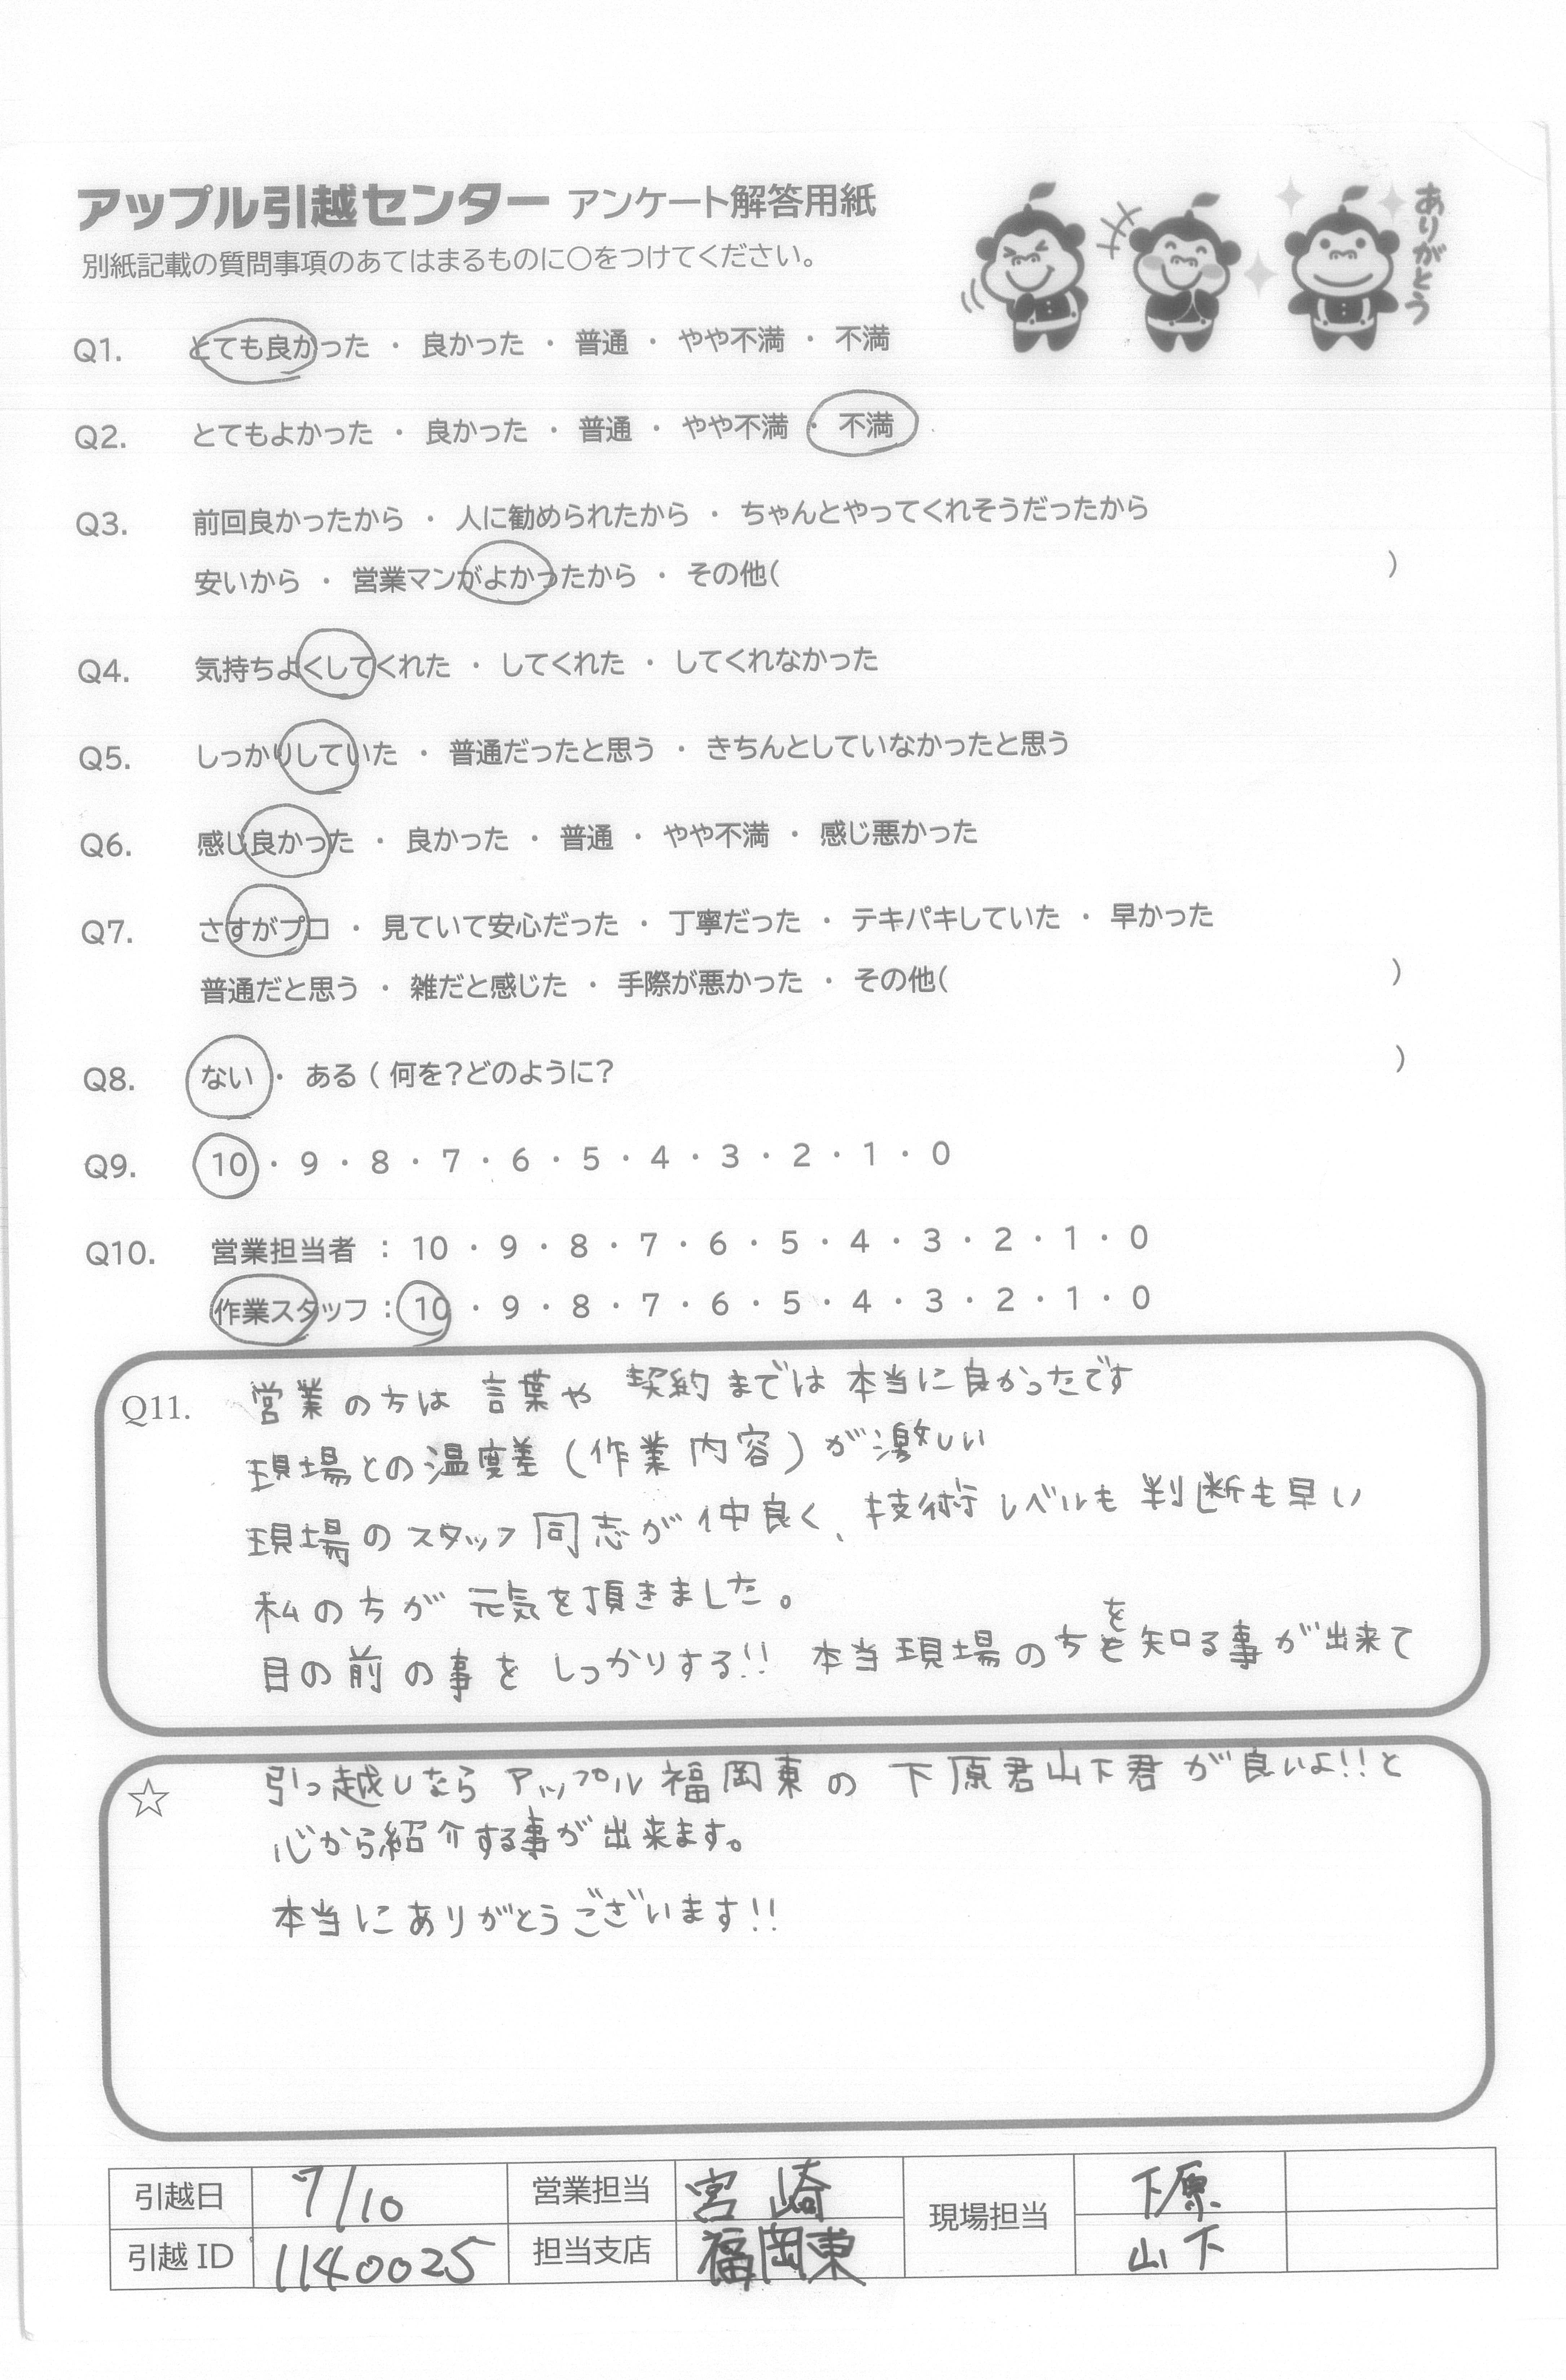 アップル引越センター アンケート解答用紙
ありがとう
別紙記載の質問事項のあてはまるものに〇をつけてください。
Q1. とても良かった ・ 良かった ・ 普通 ・ やや不満 ・ 不満
Q2. とてもよかった ・ 良かった ・ 普通 ・ やや不満 ・ 不満
Q3. 前回良かったから ・ 人に勧められたから ・ ちゃんとやってくれそうだったから
安いから ・ 営業マンがよかったから ・ その他( )
Q4. 気持ちよくしてくれた ・ してくれた ・ してくれなかった
Q5. しっかりしていた ・ 普通だったと思う ・ きちんとしていなかったと思う
Q6. 感じ良かった ・ 良かった ・ 普通 ・ やや不満 ・ 感じ悪かった
Q7. さすがプロ ・ 見ていて安心だった ・ 丁寧だった ・ テキパキしていた ・ 早かった
普通だと思う ・ 雑だと感じた ・ 手際が悪かった ・ その他( )
Q8. ない ・ ある ( 何を?どのように? )
Q9. 10 ・ 9 ・ 8 ・ 7 ・ 6 ・ 5 ・ 4 ・ 3 ・ 2 ・ 1 ・ 0
Q10. 営業担当者 : 10 ・ 9 ・ 8 ・ 7 ・ 6 ・ 5 ・ 4 ・ 3 ・ 2 ・ 1 ・ 0
作業スタッフ : 10 ・ 9 ・ 8 ・ 7 ・ 6 ・ 5 ・ 4 ・ 3 ・ 2 ・ 1 ・ 0
Q11. 営業の方は 言葉や 契約までは 本当に良かったです
現場との温度差(作業内容)が激しい
現場のスタッフ同志が仲良く、技術レベルも判断も早い
私の方が元気を頂きました。
目の前の事を しっかりする!! 本当現場の方を知る事が出来て
☆ 引っ越しなら アップル福岡東の 下原君山下君が良いよ!!と
心から紹介する事が出来ます。
本当にありがとうございます!!
引越日 7/10 営業担当 宮崎 現場担当 下原
引越ID 1140025 担当支店 福岡東 山下